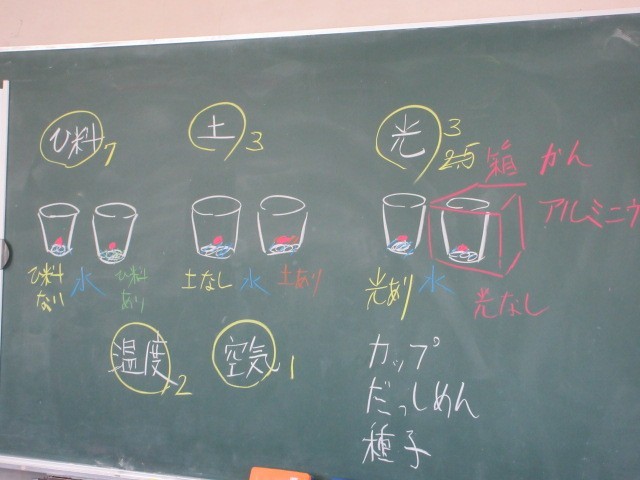 ひ料7
土3
光3
25
箱 かん
アルミニウ
ひ料ない
水
ひ料あり
土なし
水
土あり
光あり
水
光なし
温度2
空気1
カップ
だっしめん
種子